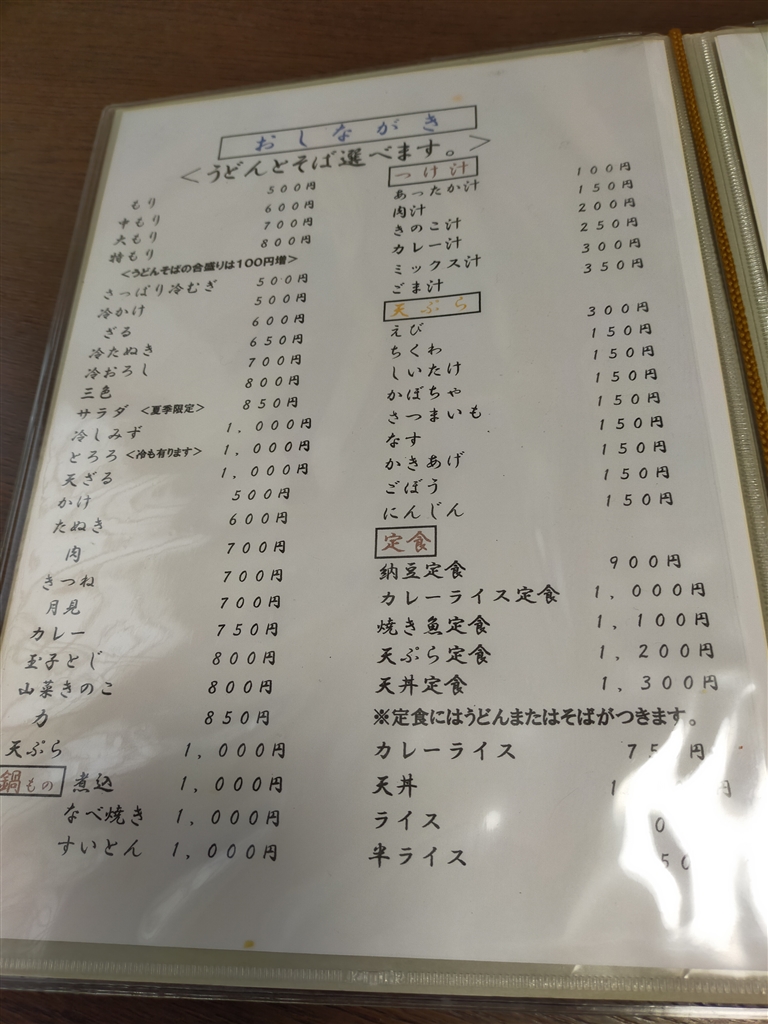 おしながき
<うどんとそば選べます。>
もり 500円
中もり 600円
大もり 700円
特もり 800円
<うどんそばの合盛りは100円増>
さっぱり冷むぎ 500円
冷かけ 500円
ざる 600円
冷たぬき 650円
冷おろし 700円
三色 800円
サラダ <夏季限定> 850円
冷しみず 1,000円
とろろ <冷も有ります> 1,000円
天ざる 1,000円
かけ 500円
たぬき 600円
肉 700円
きつね 700円
月見 700円
カレー 750円
玉子とじ 800円
山菜きのこ 800円
力 850円
天ぷら 1,000円
鍋もの 煮込 1,000円
なべ焼き 1,000円
すいとん 1,000円
つけ汁
あったか汁 100円
肉汁 150円
きのこ汁 200円
カレー汁 250円
ミックス汁 300円
ごま汁 350円
天ぷら
えび 300円
ちくわ 150円
しいたけ 150円
かぼちゃ 150円
さつまいも 150円
なす 150円
かきあげ 150円
ごぼう 150円
にんじん 150円
定食
納豆定食 900円
カレーライス定食 1,000円
焼き魚定食 1,100円
天ぷら定食 1,200円
天丼定食 1,300円
※定食にはうどんまたはそばがつきます。
カレーライス
天丼
ライス
半ライス